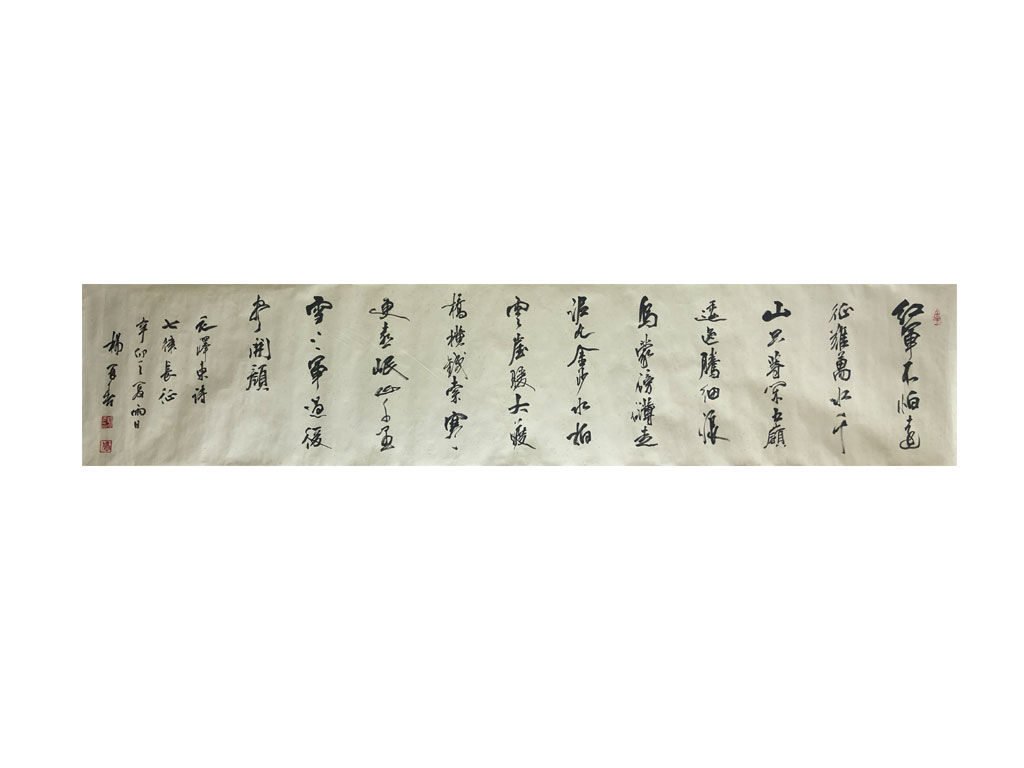 紅軍不怕遠
征難萬水千
山只等閑五嶺
逶迤騰細浪
烏蒙磅礴走
泥丸金沙水拍
雲崖暖大渡
橋橫鐵索寒
更喜岷山千里
雪三軍過後
盡開顏
毛澤東詩
七律長征
辛卯之夏雨日
楊